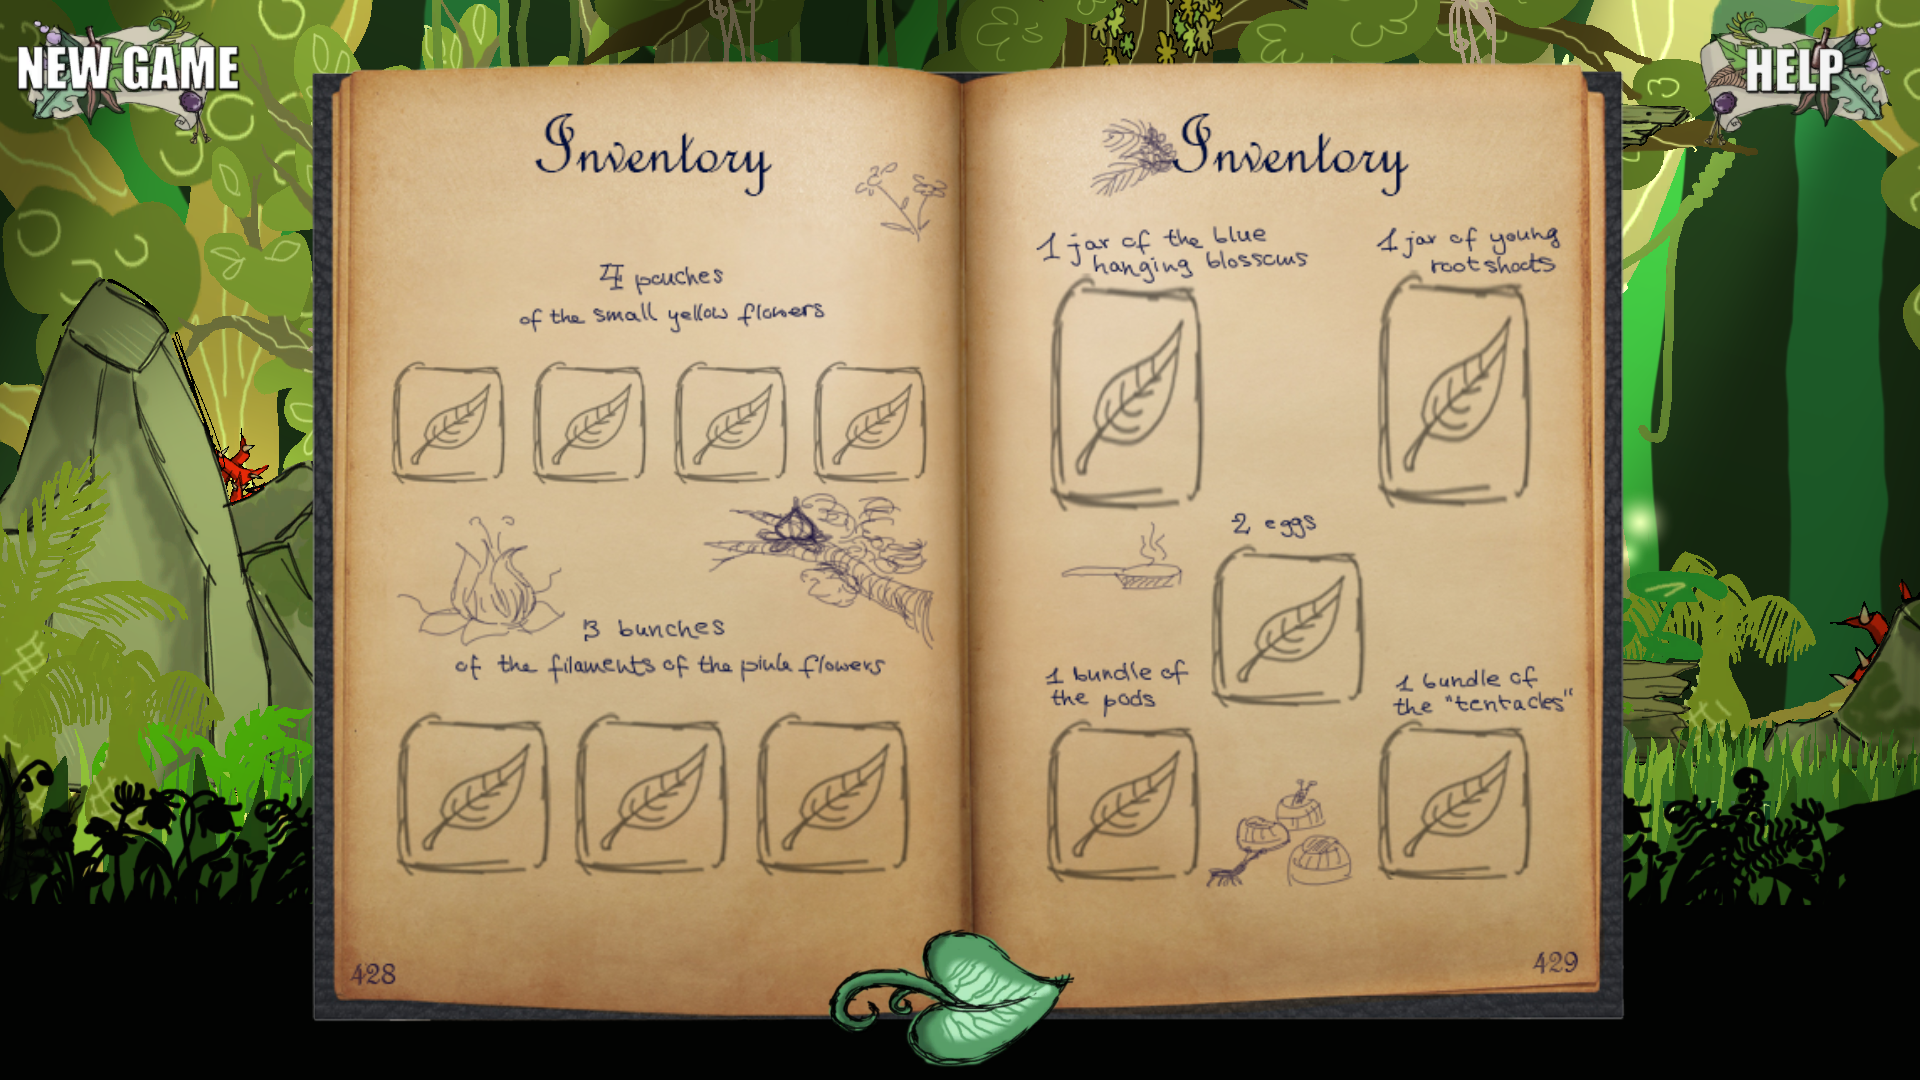 NEW GAME
HELP
Inventory
4 pouches
of the small yellow flowers
3 bunches
of the filaments of the pink flowers
428
Inventory
1 jar of the blue
hanging blossoms
1 jar of young
root shoots
2 eggs
1 bundle of
the pods
1 bundle of
the "tentacles"
429